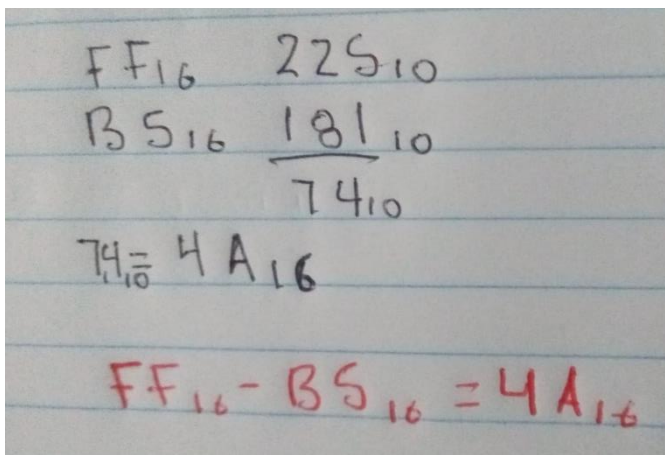 FF₁₆ 225₁₀
B5₁₆ 181₁₀
74₁₀
74₁₀= 4A₁₆
FF₁₆ - B5₁₆ = 4A₁₆